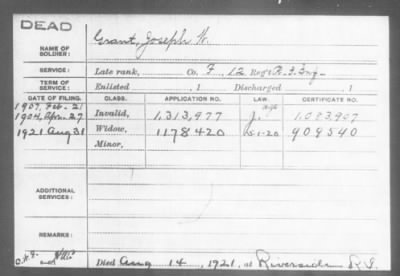 DEAD
NAME OF SOLDIER: Grant, Joseph W.
SERVICE: Late rank, Co. F, 12 Reg't R.I. Inf.
TERM OF SERVICE: Enlisted , 1 Discharged , 1
DATE OF FILING. CLASS. APPLICATION NO. LAW. CERTIFICATE NO.
1907, Feb. 21
1904, Apr. 27 Invalid, 1,313,977 J. 1,083,907
1921 Aug 31 Widow, 1178420 5-1-20 909540
Minor,
ADDITIONAL SERVICES:
REMARKS:
Died Aug 14, 1921, at Riverside R.I.